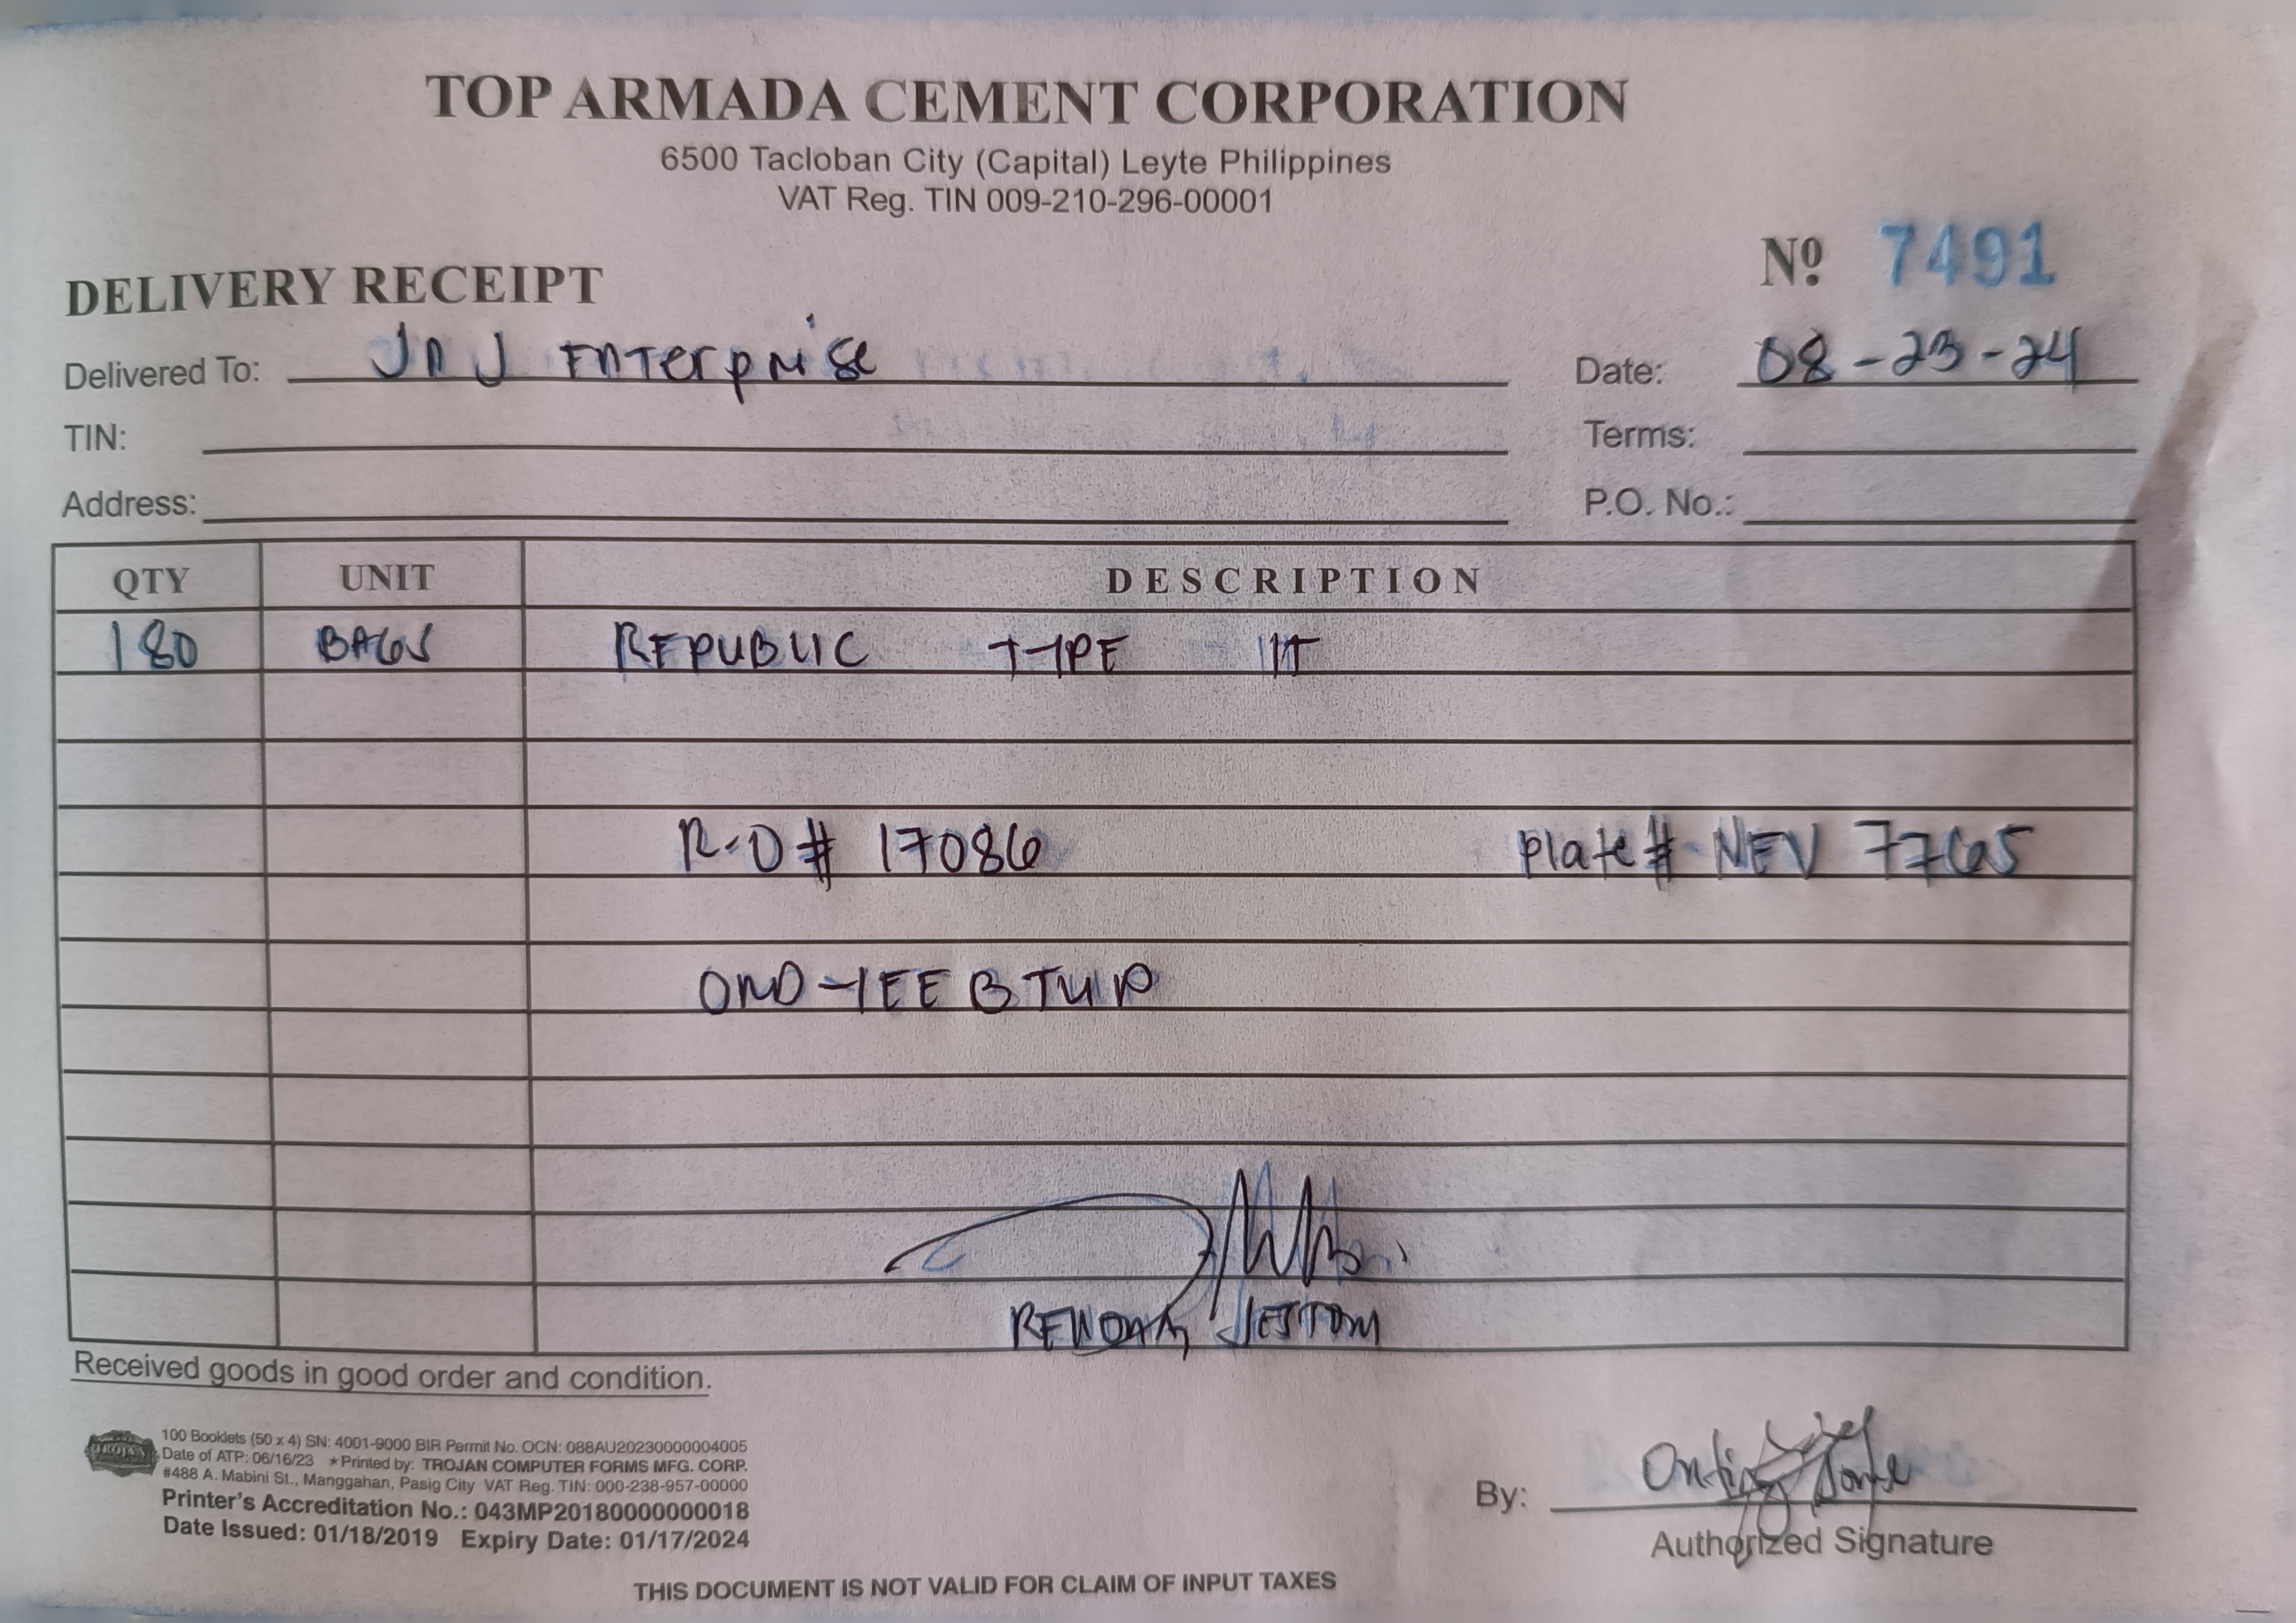 TOP ARMADA CEMENT CORPORATION
6500 Tacloban City (Capital) Leyte Philippines
VAT Reg. TIN 009-210-296-00001
Nº 7491
DELIVERY RECEIPT
Delivered To: JNJ Enterprise Date: 08-23-24
TIN: Terms:
Address: P.O. No.:
QTY UNIT DESCRIPTION
180 BAGS REPUBLIC TYPE 1T
R.O# 17086 Plate# NEV 7765
Received goods in good order and condition.
TROJAN
100 Booklets (50 x 4) SN: 4001-9000 BIR Permit No. OCN: 088AU20230000004005
Date of ATP: 06/16/23 ★Printed by: TROJAN COMPUTER FORMS MFG. CORP.
#488 A. Mabini St., Manggahan, Pasig City VAT Reg. TIN: 000-238-957-00000
Printer's Accreditation No.: 043MP20180000000018
Date Issued: 01/18/2019 Expiry Date: 01/17/2024
By:
Authorized Signature
THIS DOCUMENT IS NOT VALID FOR CLAIM OF INPUT TAXES